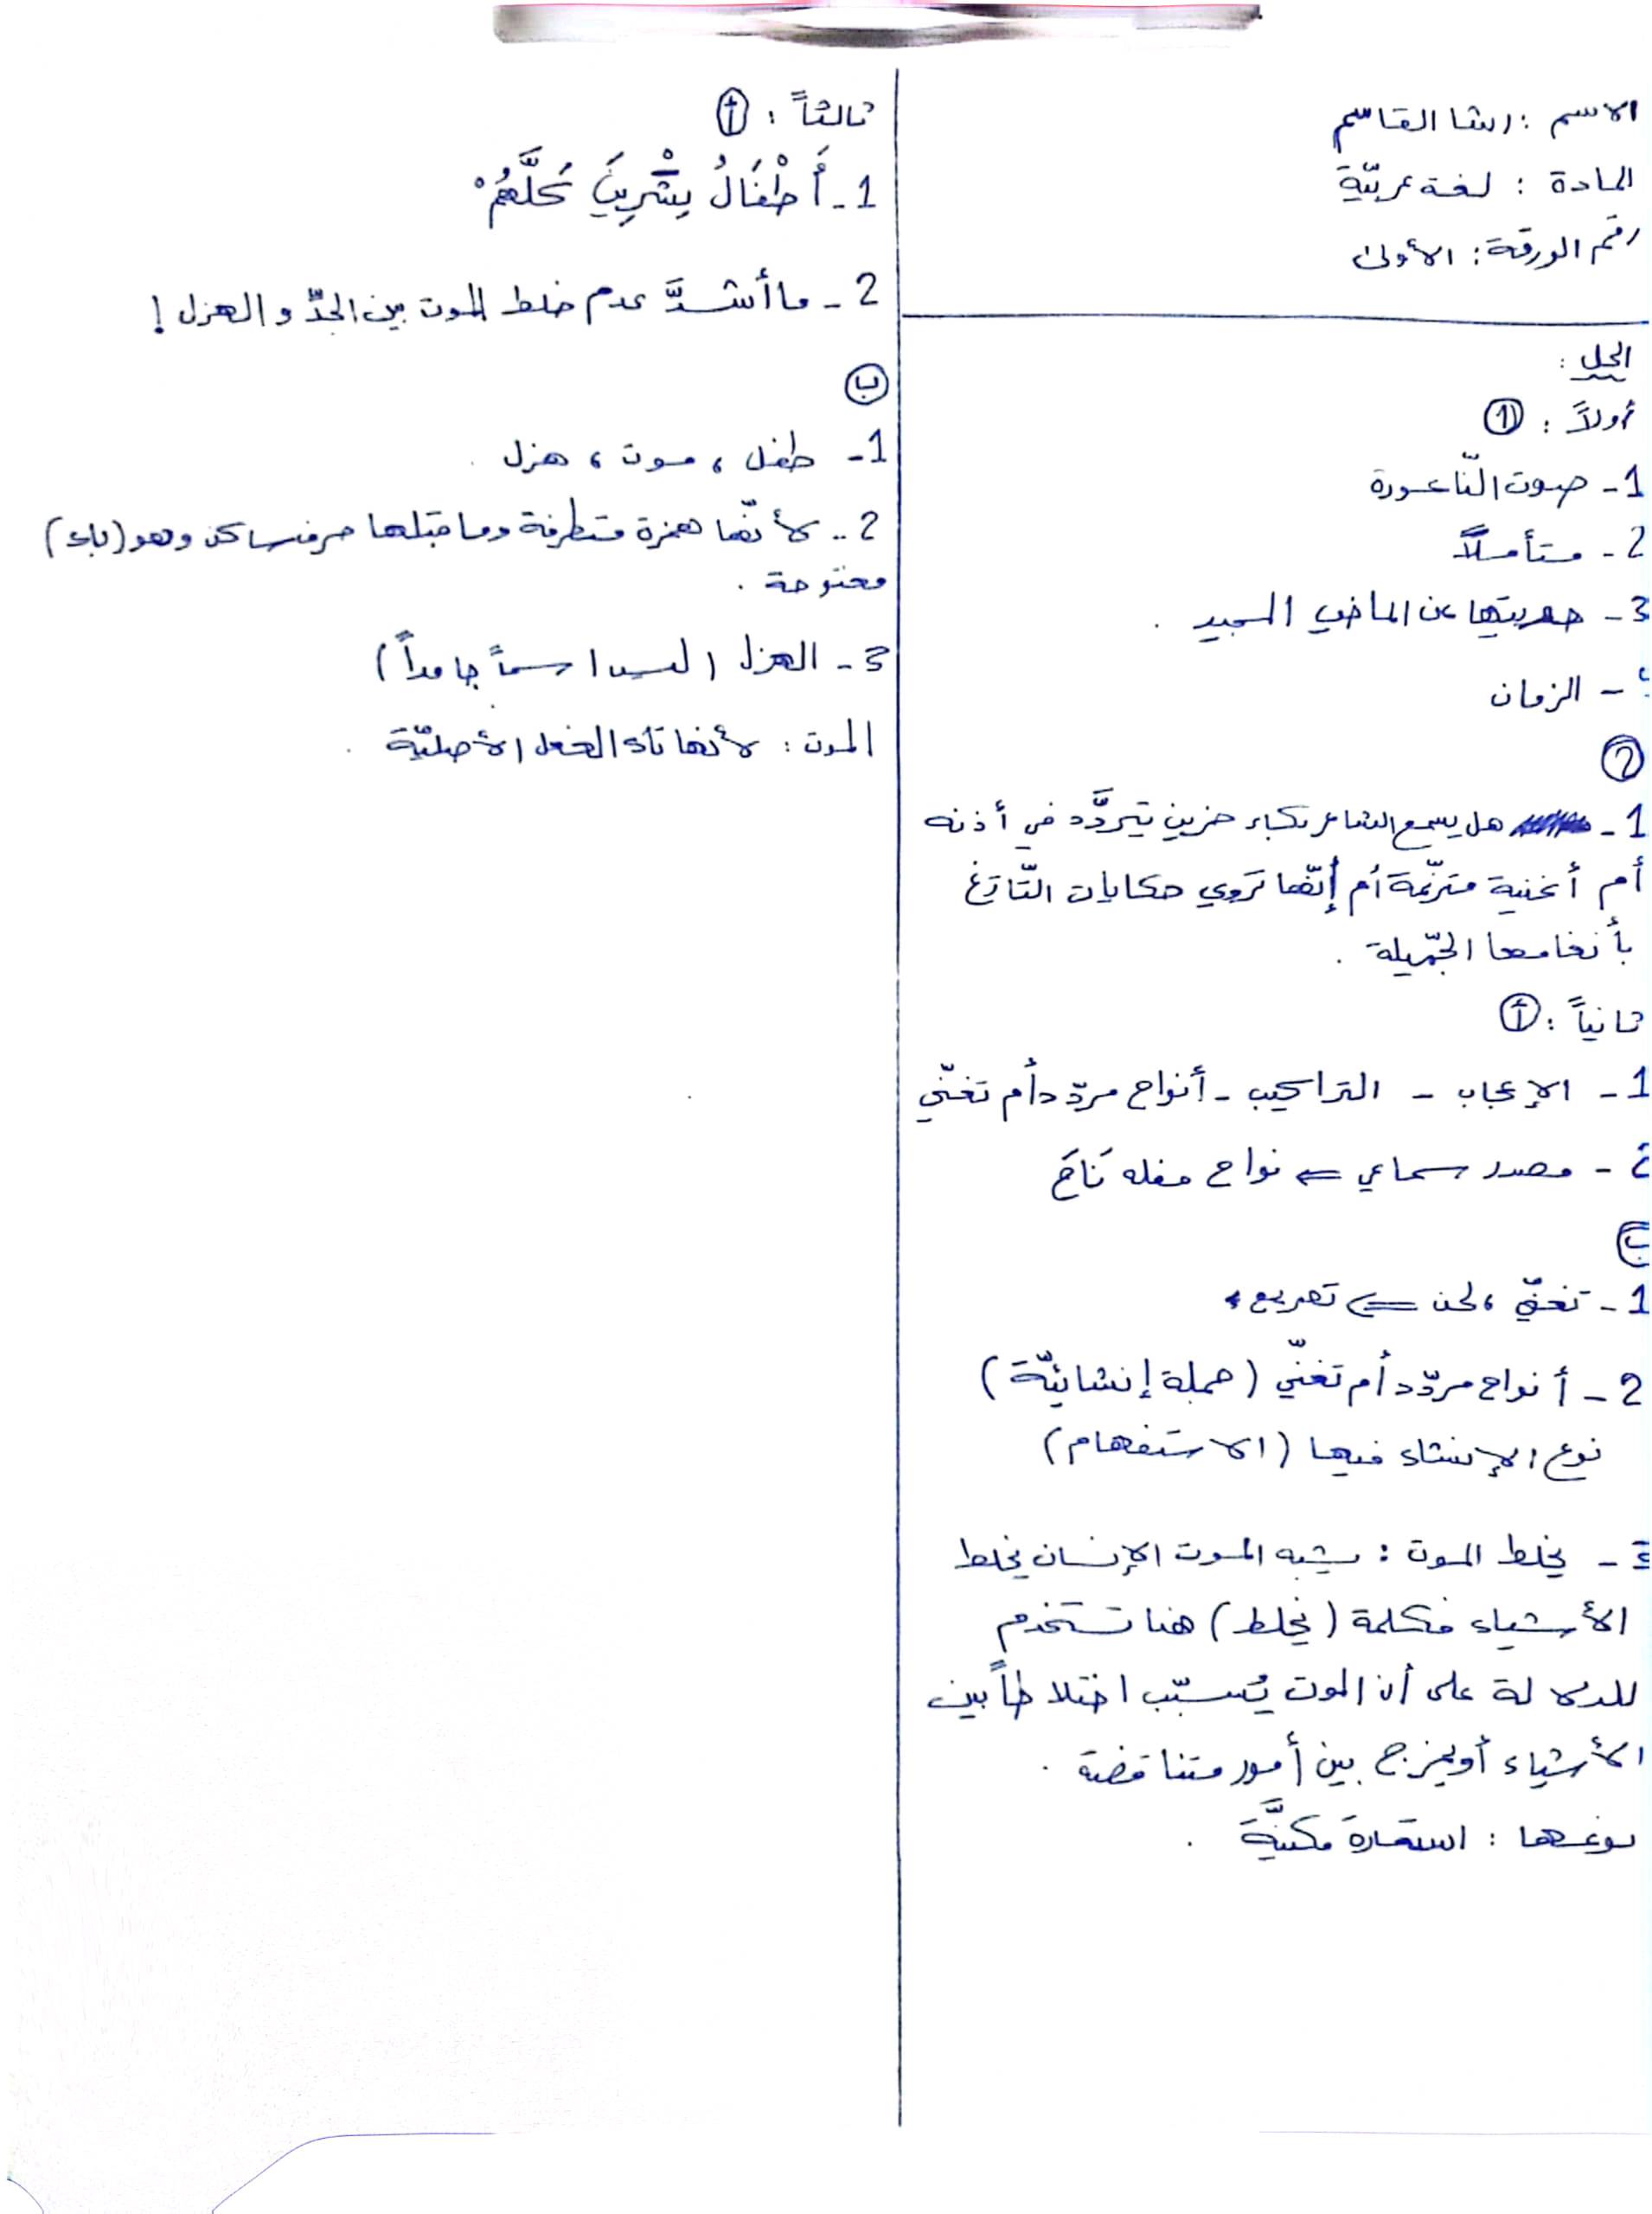 الاسم : رشا القاسم
المادة : لغة عربيّة
رقم الورقة : الأولى
الحل :
أولاً : ①
1- صوت النّاعورة
2- متأملاً
3- حديثها عن الماضي المجيد .
- الزمان
②
1- هل يسمع الشاعر بكاء حزين يتردَّد في أذنه
أم أغنية مترنّمة أم إنّها تروي حكايات التّاريخ
بأنغامها الجميلة .
ثانياً : أ
1- الإعجاب - التراكيب - أنواح مردّد أم تغنّي
2- مصدر سماعي ⇐ نواح فعله نَاحَ
ب
1- تغنّي ، لحن ⇐ تصريع .
2- أنواح مردّد أم تغنّي (جملة إنشائيّة)
نوع الإنشاء فيها (الاستفهام)
3- يخلط الموت : يشبه الموت الإنسان يخلط
الأشياء فكلمة (يخلط) هنا تستخدم
للدلالة على أن الموت يُسبّب اختلاطاً بين
الأشياء أو يمزج بين أمور متناقضة .
نوعها : استعارة مكنيَّة .
ثالثاً : أ
1- أَطْفَالُ تِشْرِينَ كُلَّهُمْ
2- ما أشدَّ عدم خلط الموت بين الجدّ و الهزل !
ب
1- طفل ، موت ، هزل .
2- لأنّها همزة متطرفة وما قبلها حرف ساكن وهو (ياء)
مفتوحة .
3- الهزل (ليس اسماً جامداً)
الموت : لأنها تاء الفعل الأصليّة .